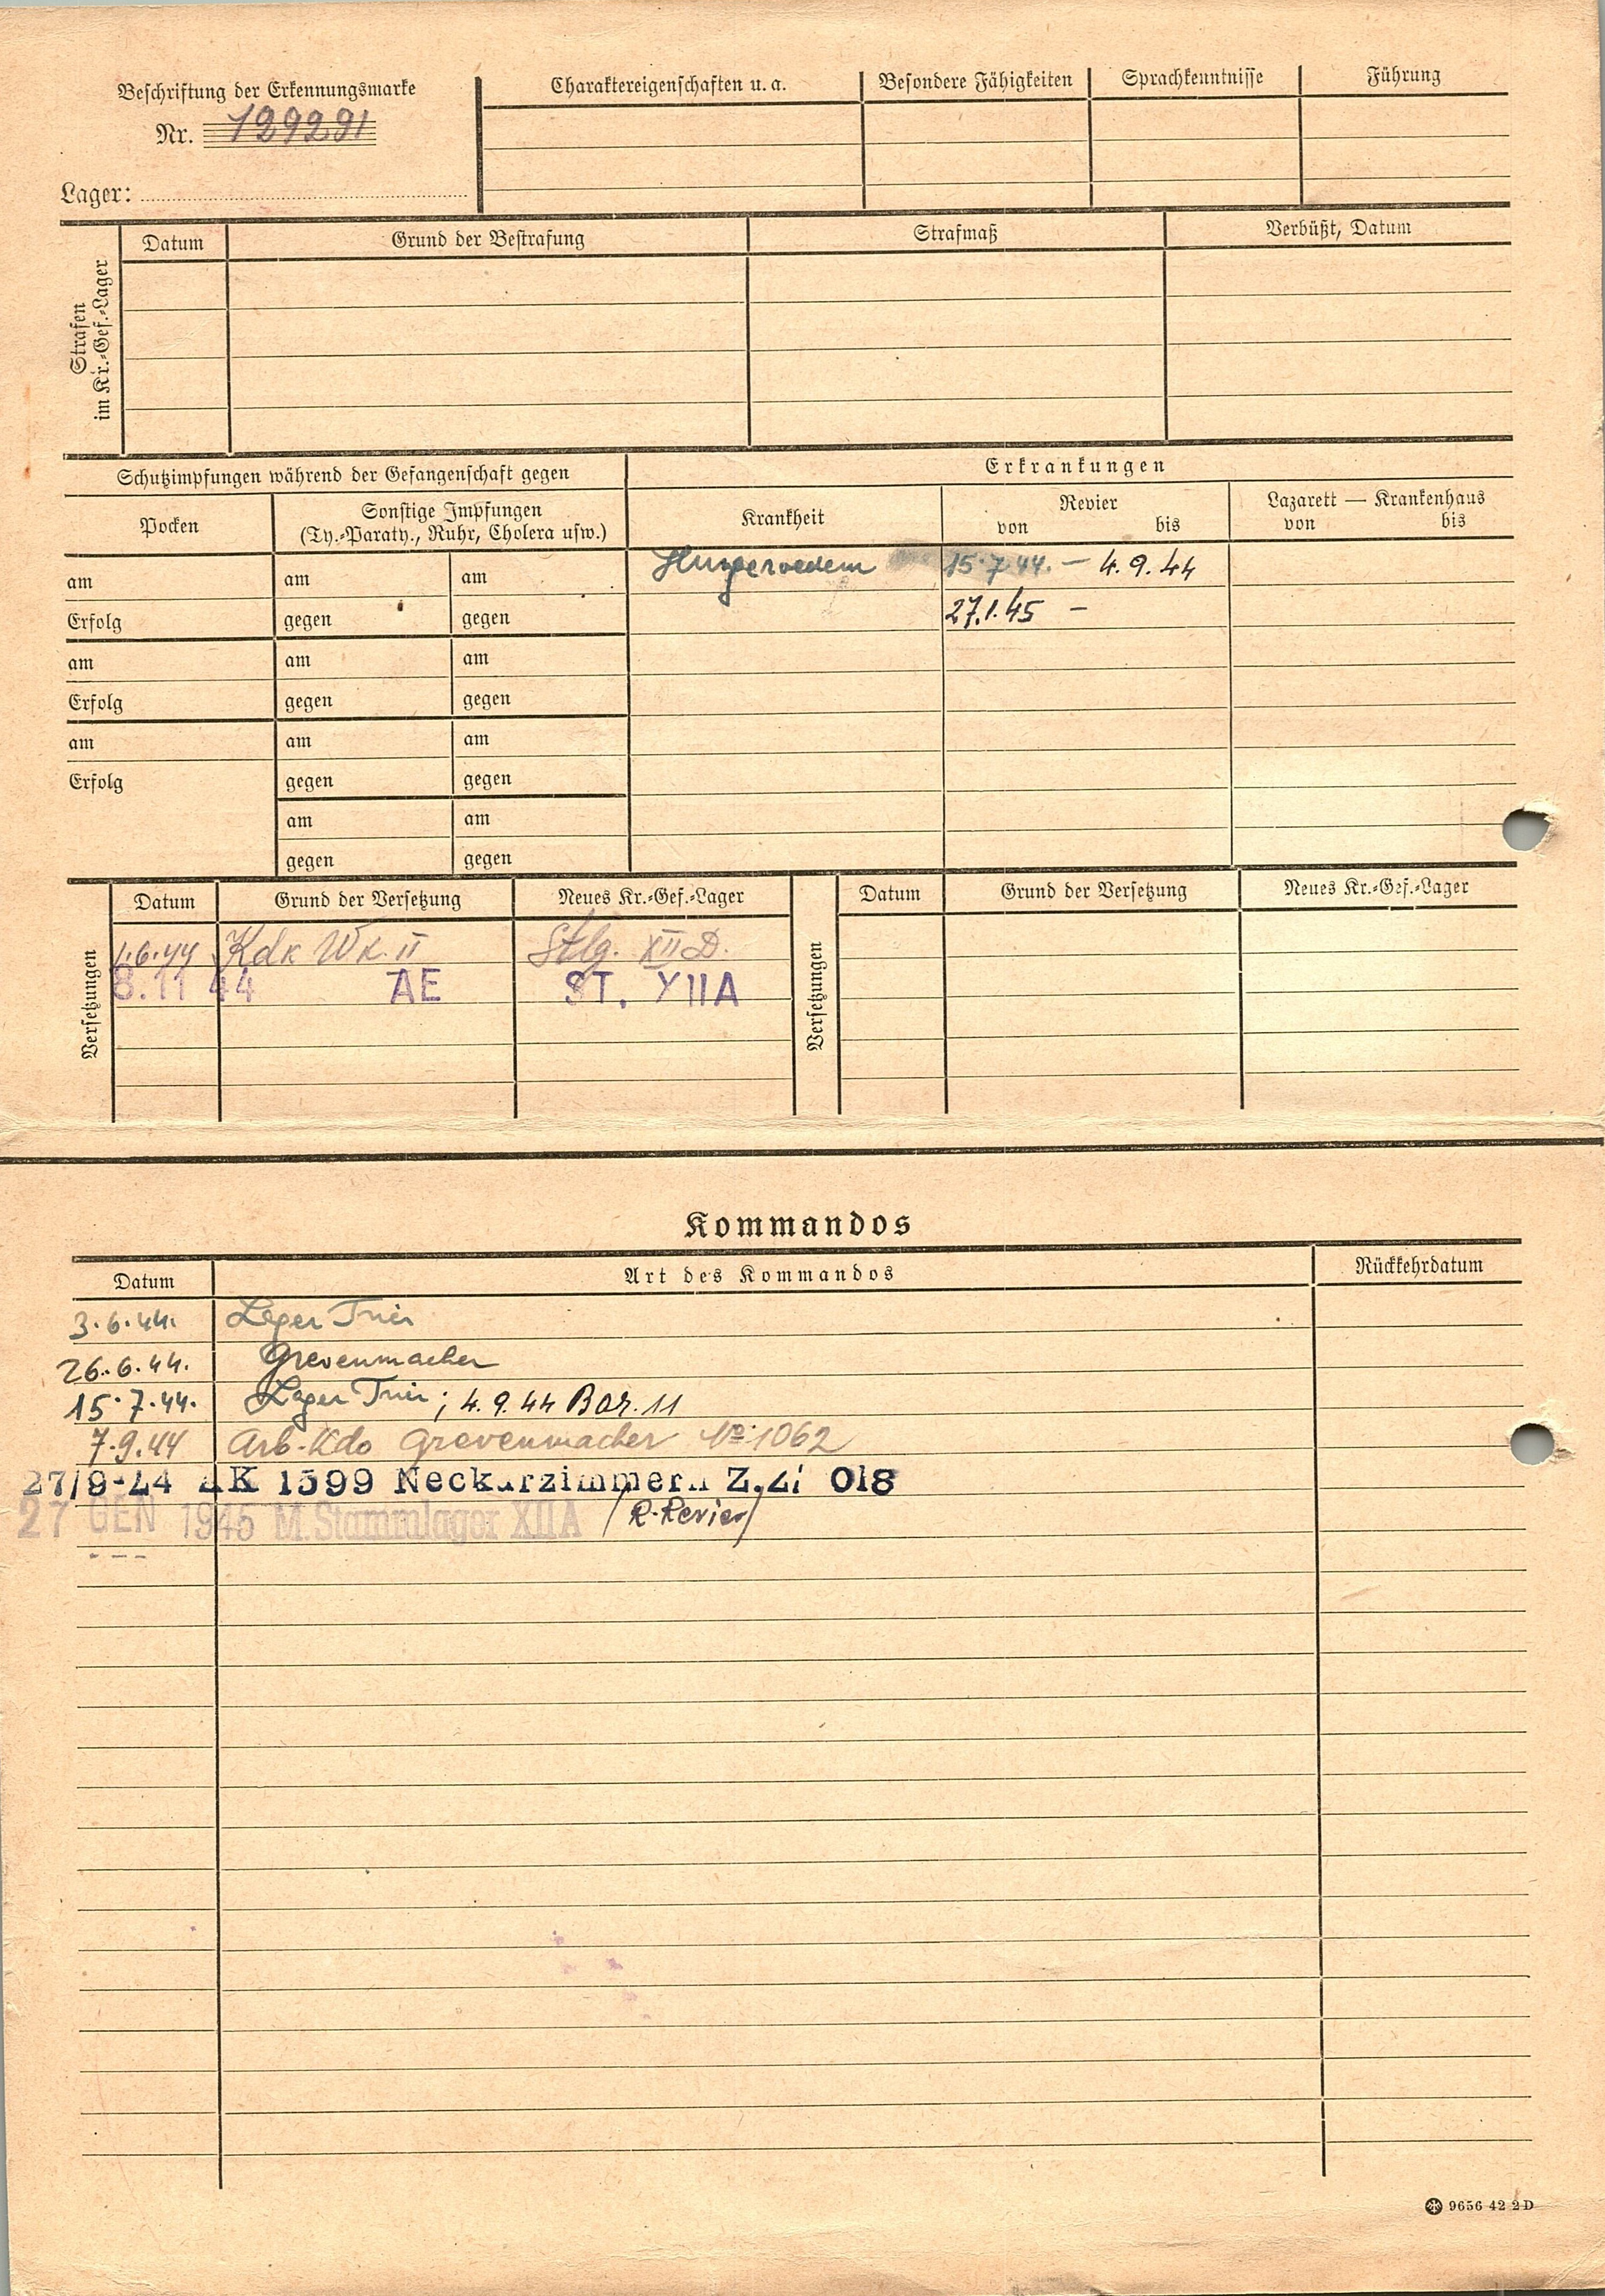 Beschriftung der Erkennungsmarke
Nr. 129291
Lager:
Charaktereigenschaften u. a. Besondere Fähigkeiten Sprachkenntnisse Führung
Strafen
im Kr.-Gef.-Lager
Datum Grund der Bestrafung Strafmaß Verbüßt, Datum
Schutzimpfungen während der Gefangenschaft gegen Erkrankungen
Pocken
Sonstige Impfungen
(Ty.-Paraty., Ruhr, Cholera usw.)
Krankheit
Revier
von bis
Lazarett — Krankenhaus
von bis
am am am Hungeroedem 15.7.44. – 4.9.44
Erfolg gegen gegen 27.1.45 –
am am am
Erfolg gegen gegen
am am am
Erfolg gegen gegen
am am
gegen gegen
Versetzungen
Datum Grund der Versetzung Neues Kr.-Gef.-Lager
1.6.44 Kdk Wk. II Stlg. XII D.
8.11 44 AE ST. XIIA
Versetzungen
Datum Grund der Versetzung Neues Kr.-Gef.-Lager
Kommandos
Datum Art des Kommandos Rückkehrdatum
3.6.44. Lager Trier
26.6.44. Grevenmacher
15.7.44. Lager Trier; 4.9.44 Bar. 11
7.9.44 Arb-Kdo Grevenmacher No 1062
27/9-44 AK 1599 Neckarzimmern 018
27 GEN 1945 M.Stammlager XIIA (R-Revier)
9656 42 2D